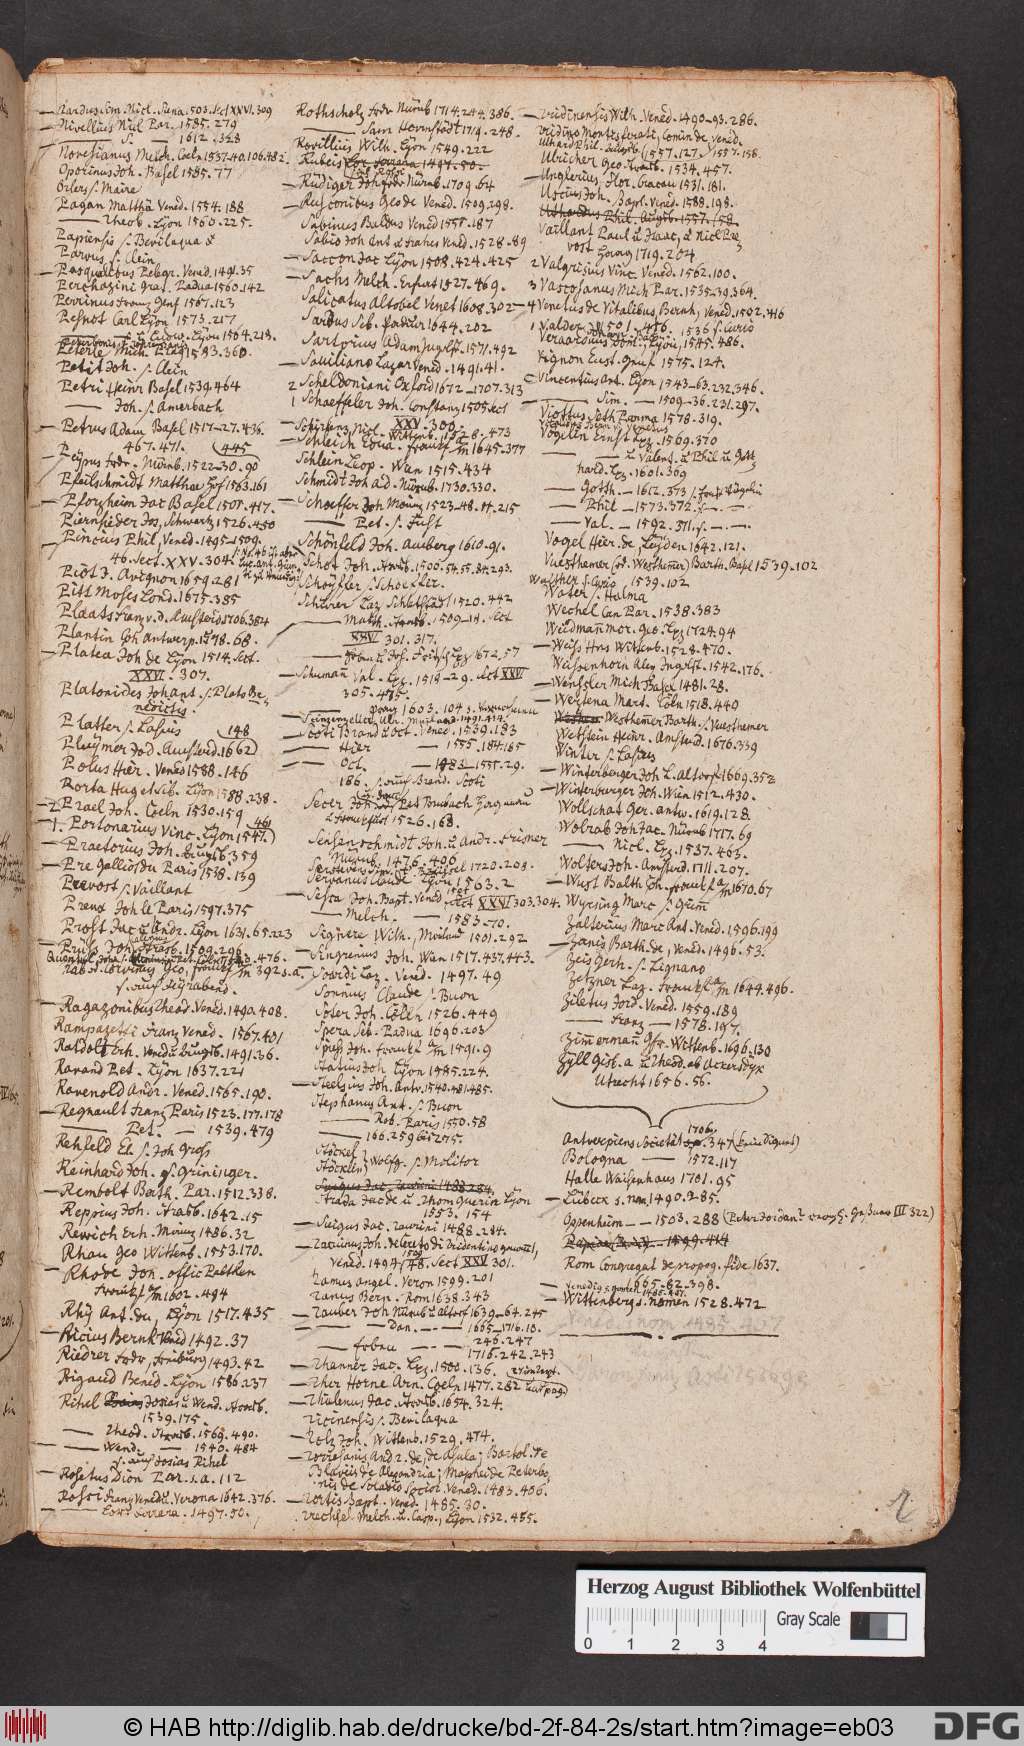 — Nardus Sim. Nicl. Siena. 503. Sect XXVI. 309
— Nivellius Nicl. Par. 1585. 279
— S. — 1612. 328
Novesianus Melch. Coeln 1537-40. 106. 482
Oporinus Joh. Basel 1585. 77
Orlers s. Maire
Pagan Matthä Vened. 1554. 188
— Theob. Lyon 1560. 225.
Papiensis s. Bevilaqua
Parvus s. Clein
— Pasqualibus Pelegr. Vened. 1491. 35
Perchazini Graz. Padua 1560. 142
Perrinus Franz Genf 1567. 123
Pesnot Carl Lyon 1573. 217
Peterle Mich. Prag 1583. 360.
Petit Joh. s. Clein
Petri Heinr. Basel 1539. 464
— Joh. s. Amerbach
— Petrus Adam Basel 1517-27. 436.
467. 471. 445
— Peypus Fridr. Nürnb. 1522-30. 90
Pfeilschmidt Matthae Hof 1583. 161
— Pforzheim Jac Basel 1507. 417.
— Piernsieder Jos, Schwartz 1526. 450
— Pincius Phil, Vened. 1495-1509.
46. Sect. XXV. 304.
Piot J. Avignon 1659. 281
Pitt Moses Lond. 1675. 385
Plaats Franz v. d. Amsterd. 1706. 384
Plantin Chph. Antwerp. 1578. 68.
— Platea Joh de Lyon 1514. Sect.
XXVI. 307.
Platonides Joh ant. s. Plato Benedictis.
Platter s. Lasius 148
Pluymer Jod. Amsterd. 1662
Polus Hier. Vened. 1588. 146
Porta Hug et Seb. Lyon 1588. 238.
— 2 Prael Joh. Coeln 1530. 159
— 1. Portonarius Vinc. Lyon 1547. 461
— Praetorius Joh. 359
— Pre Galliot du Paris 1538. 139
Prevost s. Vaillant
Preux Joh le Paris 1597. 375
Prost Jac u. Andr. Lyon 1631. 65. 223
— Prüss Joh Strasb. 1509. 296
Rab od. Corvinus Geo, Franckf a/m 392 s. a.
s. auch Feigrabend.
— Ragazonibus Theod. Vened. 1490. 408.
Rampazetti Franz Vened. 1567. 401
Ratdolt Erh. Vened. u. Augsb. 1491. 36.
Ravand Pet. Lyon 1637. 221
Ravenold Andr. Vened. 1565. 190.
— Regnault Franz Paris 1523. 177. 178
— Pet. — 1539. 479
Rehfeld El. s. Joh Gross
Reinhard Joh. gt. Grininger.
— Rembolt Barth. Par. 1512. 338.
Reppius Joh. Strasb. 1642. 15
Rewich Erh. Mainz 1486. 32
Rhau Geo Wittenb. 1553. 170.
— Rhode Jon. offic Paethen
Franckf a/m 1602. 494
Rhÿ Ant. du, Lyon 1517. 435
— Ricius Bernh Vened 1492. 37
Riedrer Fridr, Freiburg 1493. 42
Rigaud Bened. Lyon 1586. 237
Rihel Josias u Wend. Strasb.
1539. 175
— Theod. Strasb. 1569. 490.
— Wend. — 1540. 484
s. auch Josias Rihel
— Rosetus Dion Par. s. a. 112
— Rossi Franz Vened. u. Verona 1642. 376.
Lor. Ferrara. 1497. 50.
Rothscholz Fridr Nürnb 1714. 244. 386.
— Sam Hernstadt 1719. 248.
Rovillius Wilh. Lyon 1549. 222
Rubeis Lor. Ferrara 1497. 50.
— Rüdiger Joh Fridr Nürnb. 1709. 64
— Rusconibus Geo de Vened. 1509. 298.
— Sabinus Baldus Vened 1555. 187
Sabio Joh Ant & Frates Vened. 1528. 89
— Saccon Jac Lyon 1508. 424. 425
— Sachs Melch. Erfurt 1527. 469.
Salicatus Altobel Venet 1608. 302
Sardus Seb. Padua 1644. 202
Sartorius Adam Ingolst. 1571. 492
— Saviliano Lazar Vened. 1491. 41.
2 Scheldoniani Oxford 1672-1707. 313
1 Schaeffeler Joh. Constanz 1505 Sect
XXV. 300.
— Schirlenz Nicl. Wittenb. 1528. 473
— Schleich Edua. Franckf a/m 1645. 377
Schlein Leop. Wien 1515. 434
Schmidt Joh Ad. Nürnb. 1730. 330.
— Schoeffer Joh Mainz 1523-48. 4. 215
— Pet. s. Fust
Schönfeld Joh. Amberg 1610. 91.
— Schot Joh. Strasb. 1500. 54. 55. 84. 293.
— Schöyffler s. Schoeffer.
Schürer Laz Schletstad 1520. 442
— Matth. Strasb. 1509-14. Sect
XXVI 301. 317.
— Erben u. Joh. Fritzsch Lpz 1672. 57
— Schuman Val. Lpz. 1519-29. Sect XXVI
305. 475.
— Scinzenzeller Ulr. Mailand. 1491. 414.
— Scoti Brand u. Oct. Vened. 1539. 183
— Hier — 1555. 184. 185
— Oct. — 1483-1555. 29.
186. s. auch Brand. Scoti
Secer Joh
1526. 168.
Sensenschmidt Joh. u. Andr. Frisner
Nürnb. 1476. 406
Serstevens Brüssel 1720. 208.
— Servanius Claude Lyon 1563. 2
— Sessa Joh. Bapt. Vened. Sect XXVI 303. 304.
— Melch. — 1583-70.
— Signere Wilh., Mailand 1501. 292
— Singrenius Joh. Wien 1517. 437. 443.
— Soardi Laz. Vened. 1497. 49
Sonnius Claude s. Buon
— Soter Joh. Cölln 1526. 449
Spera Seb. Padua 1696. 203
— Spies Joh. Franckf a/m 1591. 9
Statius Joh Lyon 1585. 224.
— Steelsius Joh. Antv. 1540. 481. 485.
Stephanus Ant. s. Buon
— Rob. Paris 1550. 58
166. 259 bis 275.
Stöckel
Stöcklin Wolfg. s. Molitor
Suigus Jac. Taurini 1488. 284.
Strada Jac de u. Thom Guerin Lyon
1553. 154
— Suigus Jac. Taurini 1488. 284.
— Tacuinus Joh. de Cereto di Tridentino genannt,
Vened. 1494. 48. Sect XXV 301.
Tamus Angel. Veron 1599. 201
Tanus Bern. Rom 1638. 343
— Tauber Joh Nürnb u. Altorf 1639-64. 245
— Dan. — 1665-1716. 10.
246. 247
— Erben — 1716. 242. 243
— Thanner Jac. Lpz. 1500. 136.
— Ther Horne Arn. Coeln 1477. 282
— Thulenus Jac. Strasb. 1654. 324.
Ticinensis s. Bevilaqua
— Tolz Joh. Wittenb. 1529. 474.
— Torresanis Andr. de, de Asula; Bartol. de
Blaviis de Alexandria; Mapheü de Peterbonis de Salodio Socior. Vened. 1483. 406.
— Tortis Bapt. Vened. 1485. 30.
Trechsel Melch. u. Casp., Lyon 1532. 455.
— Tridinensis Wilh. Vened. 1490-93. 286.
Tridino Montesferati, Comin de Vened.
1557. 158.
Ulhard Phil. Augsb. 1557. 127.
Ulricher Geo. Strasb. 1534. 457.
— Unglerius, Flor. Cracau 1531. 181.
— Utcius Joh. Bapt. Vened. 1588. 198.
Ulhardus Phil. Augsb. 1557. 158
Vaillant Paul u. Isaac, & Nicl Prevost Haag 1719. 204
2 Valgrisius Vinc. Vened. 1562. 100.
3 Vascosanus Mich Par. 1535-39. 364.
— 4 Venetus de Vitalibus, Bernh, Vened. 1502. 416
1 Valder J. 1501. 456. 1536 s. Curio
Veraardus Lyon, 1545. 486.
Vignon Eust. Genf. 1575. 124.
Vincentius Ant. Lyon 1543-63. 232. 346.
— Sim. — 1509-36. 231. 297.
Viottus Seth Parma 1578. 319.
Vögelin Ernst Lpz. 1569. 370
— & Valent. u Phil u Gotthard. Lpz. 1601. 369
— Gotth. — 1612. 373 s. Ernst Vögelin
— Phil — 1573. 372. s. — —
— Val. — 1592. 371. s. — —
Vogel Hier. de, Leyden 1642. 121.
Vuesthemer (od. Westhemer) Barth. Basl 1539. 102
Walther s. Curio, 1539. 102
Water s. Halma
Wechel Can Par. 1538. 383
Weidmañ Mor. Geo. Lpz 1724. 94
— Weiss Hns Wittenb. 1528. 470.
Weissenhorn Alex Ingolst. 1542. 176.
— Wenssler Mich Basel 1481. 28.
— Wertena Mart. Cöln 1518. 440
Westhemer Barth. s. Vuesthemer
Wetstein Heinr. Amsterd. 1676. 339
Winter s. Lasius
— Winterberger Joh L. Altorf 1669. 352
— Winterburger Joh. Wien 1512. 430.
Wolschat Ger. Antw. 1619. 128.
Wolrab Joh Jac. Nürnb 1717. 69
— Nicl. Lpz. 1537. 463.
Wolters Joh. Amsterd. 1711. 207.
— Wust Balth Chph. Franckf a/m 1670. 67
Wyrsing Marc s. Grim
Zalterius Marc Ant. Vened. 1596. 199
— Zanis Barth. de, Vened. 1496. 53.
Zeis Gerh. s. Lignano
Zetzner Laz. Franckf a/m 1649. 496.
Ziletus Jord. Vened. 1559. 189
— Franz — 1578. 197.
Zim̃ermañ Gfr. Wittenb. 1696. 130
Zyll Gisb. a u Theod. ab Ackersdyx
Utrecht 1656. 56.
1706.
Antverpiens Societät 347
Bologna — 1572. 117
Halle Waisenhaus 1701. 95
— Lübeck s. nom. 1490. 285.
Oppenheim — 1503. 288
Rom Congregat de propag. fide 1637.
— Venedig s. nomen 1485. 407.
— Wittenberg s. nomen 1528. 472
2
Herzog August Bibliothek Wolfenbüttel
Gray Scale
0 1 2 3 4
© HAB http://diglib.hab.de/drucke/bd-2f-84-2s/start.htm?image=eb03
DFG